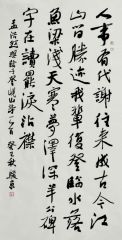 人事有代謝往來成古今江
山留勝迹我輩復登臨水落
魚梁淺天寒夢澤深羊公碑
字在讀罷淚沾襟
孟浩然與諸子登峴山一首癸巳秋